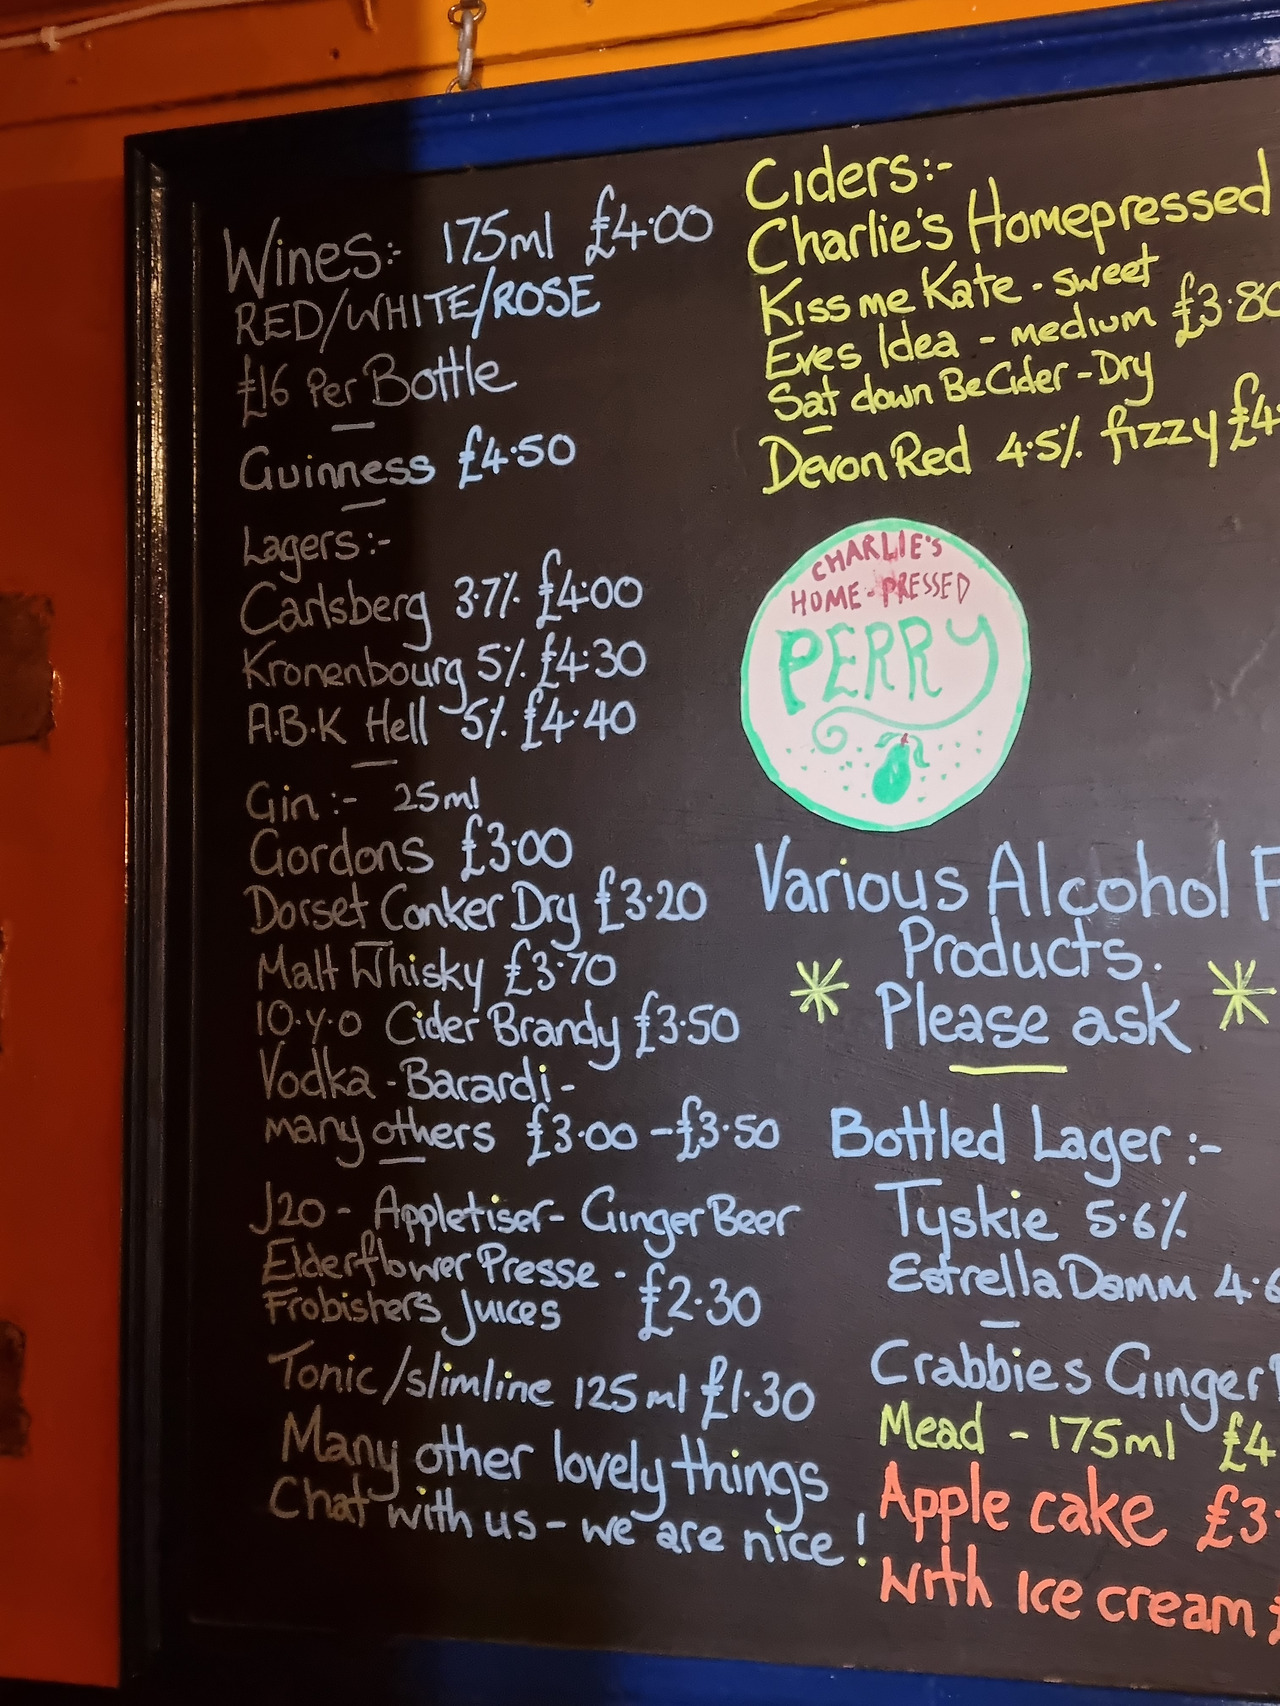 Wines:- 175ml £4.00
RED/WHITE/ROSE
£16 Per Bottle
Guinness £4.50
Lagers:-
Carlsberg 3.7% £4.00
Kronenbourg 5% £4.30
A.B.K Hell 5% £4.40
Gin:- 25ml
Gordons £3.00
Dorset Conker Dry £3.20
Malt Whisky £3.70
10.y.o Cider Brandy £3.50
Vodka - Bacardi -
many others £3.00 - £3.50
J20 - Appletiser - Ginger Beer
Elderflower Presse -
Frobishers Juices £2.30
Tonic/slimline 125ml £1.30
Many other lovely things
Chat with us - we are nice!
Ciders:-
Charlie's Homepressed
Kiss me Kate - sweet
Eves Idea - medium £3.80
Sat down BeCider - Dry
Devon Red 4.5% fizzy £4.
CHARLIE'S
HOME-PRESSED
PERRY
Various Alcohol F
Products.
* Please ask *
Bottled Lager:-
Tyskie 5.6%
Estrella Damm 4.6
Crabbies Ginger
Mead - 175ml £4
Apple cake £3.
with Ice cream £